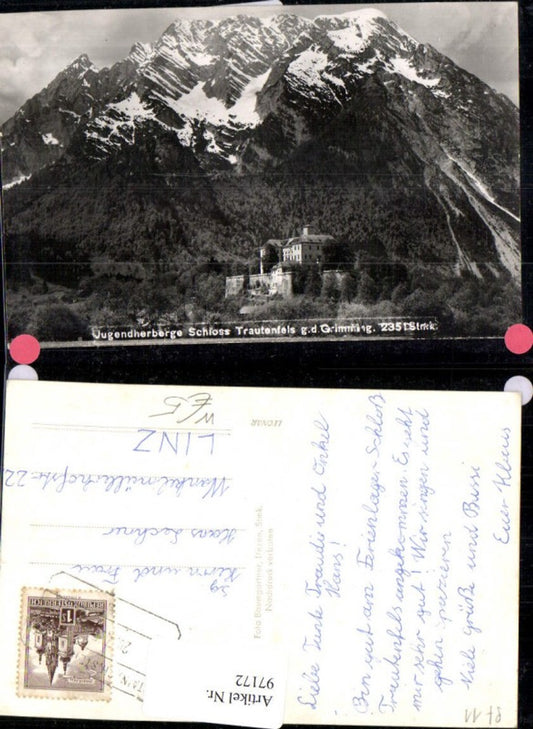 Jugendherberge Schloss Trautenfels g.d.Grimming. 2351 Stmk.
Liebe Tante Traudi und Onkel
Hans!
Bin gut am Ferienlager-Schloß
Trautenfels angekommen. Es geht
mir sehr gut! Wir singen und
gehen spazieren
Viele Grüße und Bussi
Euer Klaus
LIGNAR
Foto Baumgartner, Irdning, Stmk.
Nachdruck verboten
Herrn und Frau
Hans Lechner
Wankmüllerhofstr. 22
LINZ
REPUBLIK ÖSTERREICH
Artikel Nr.
97172